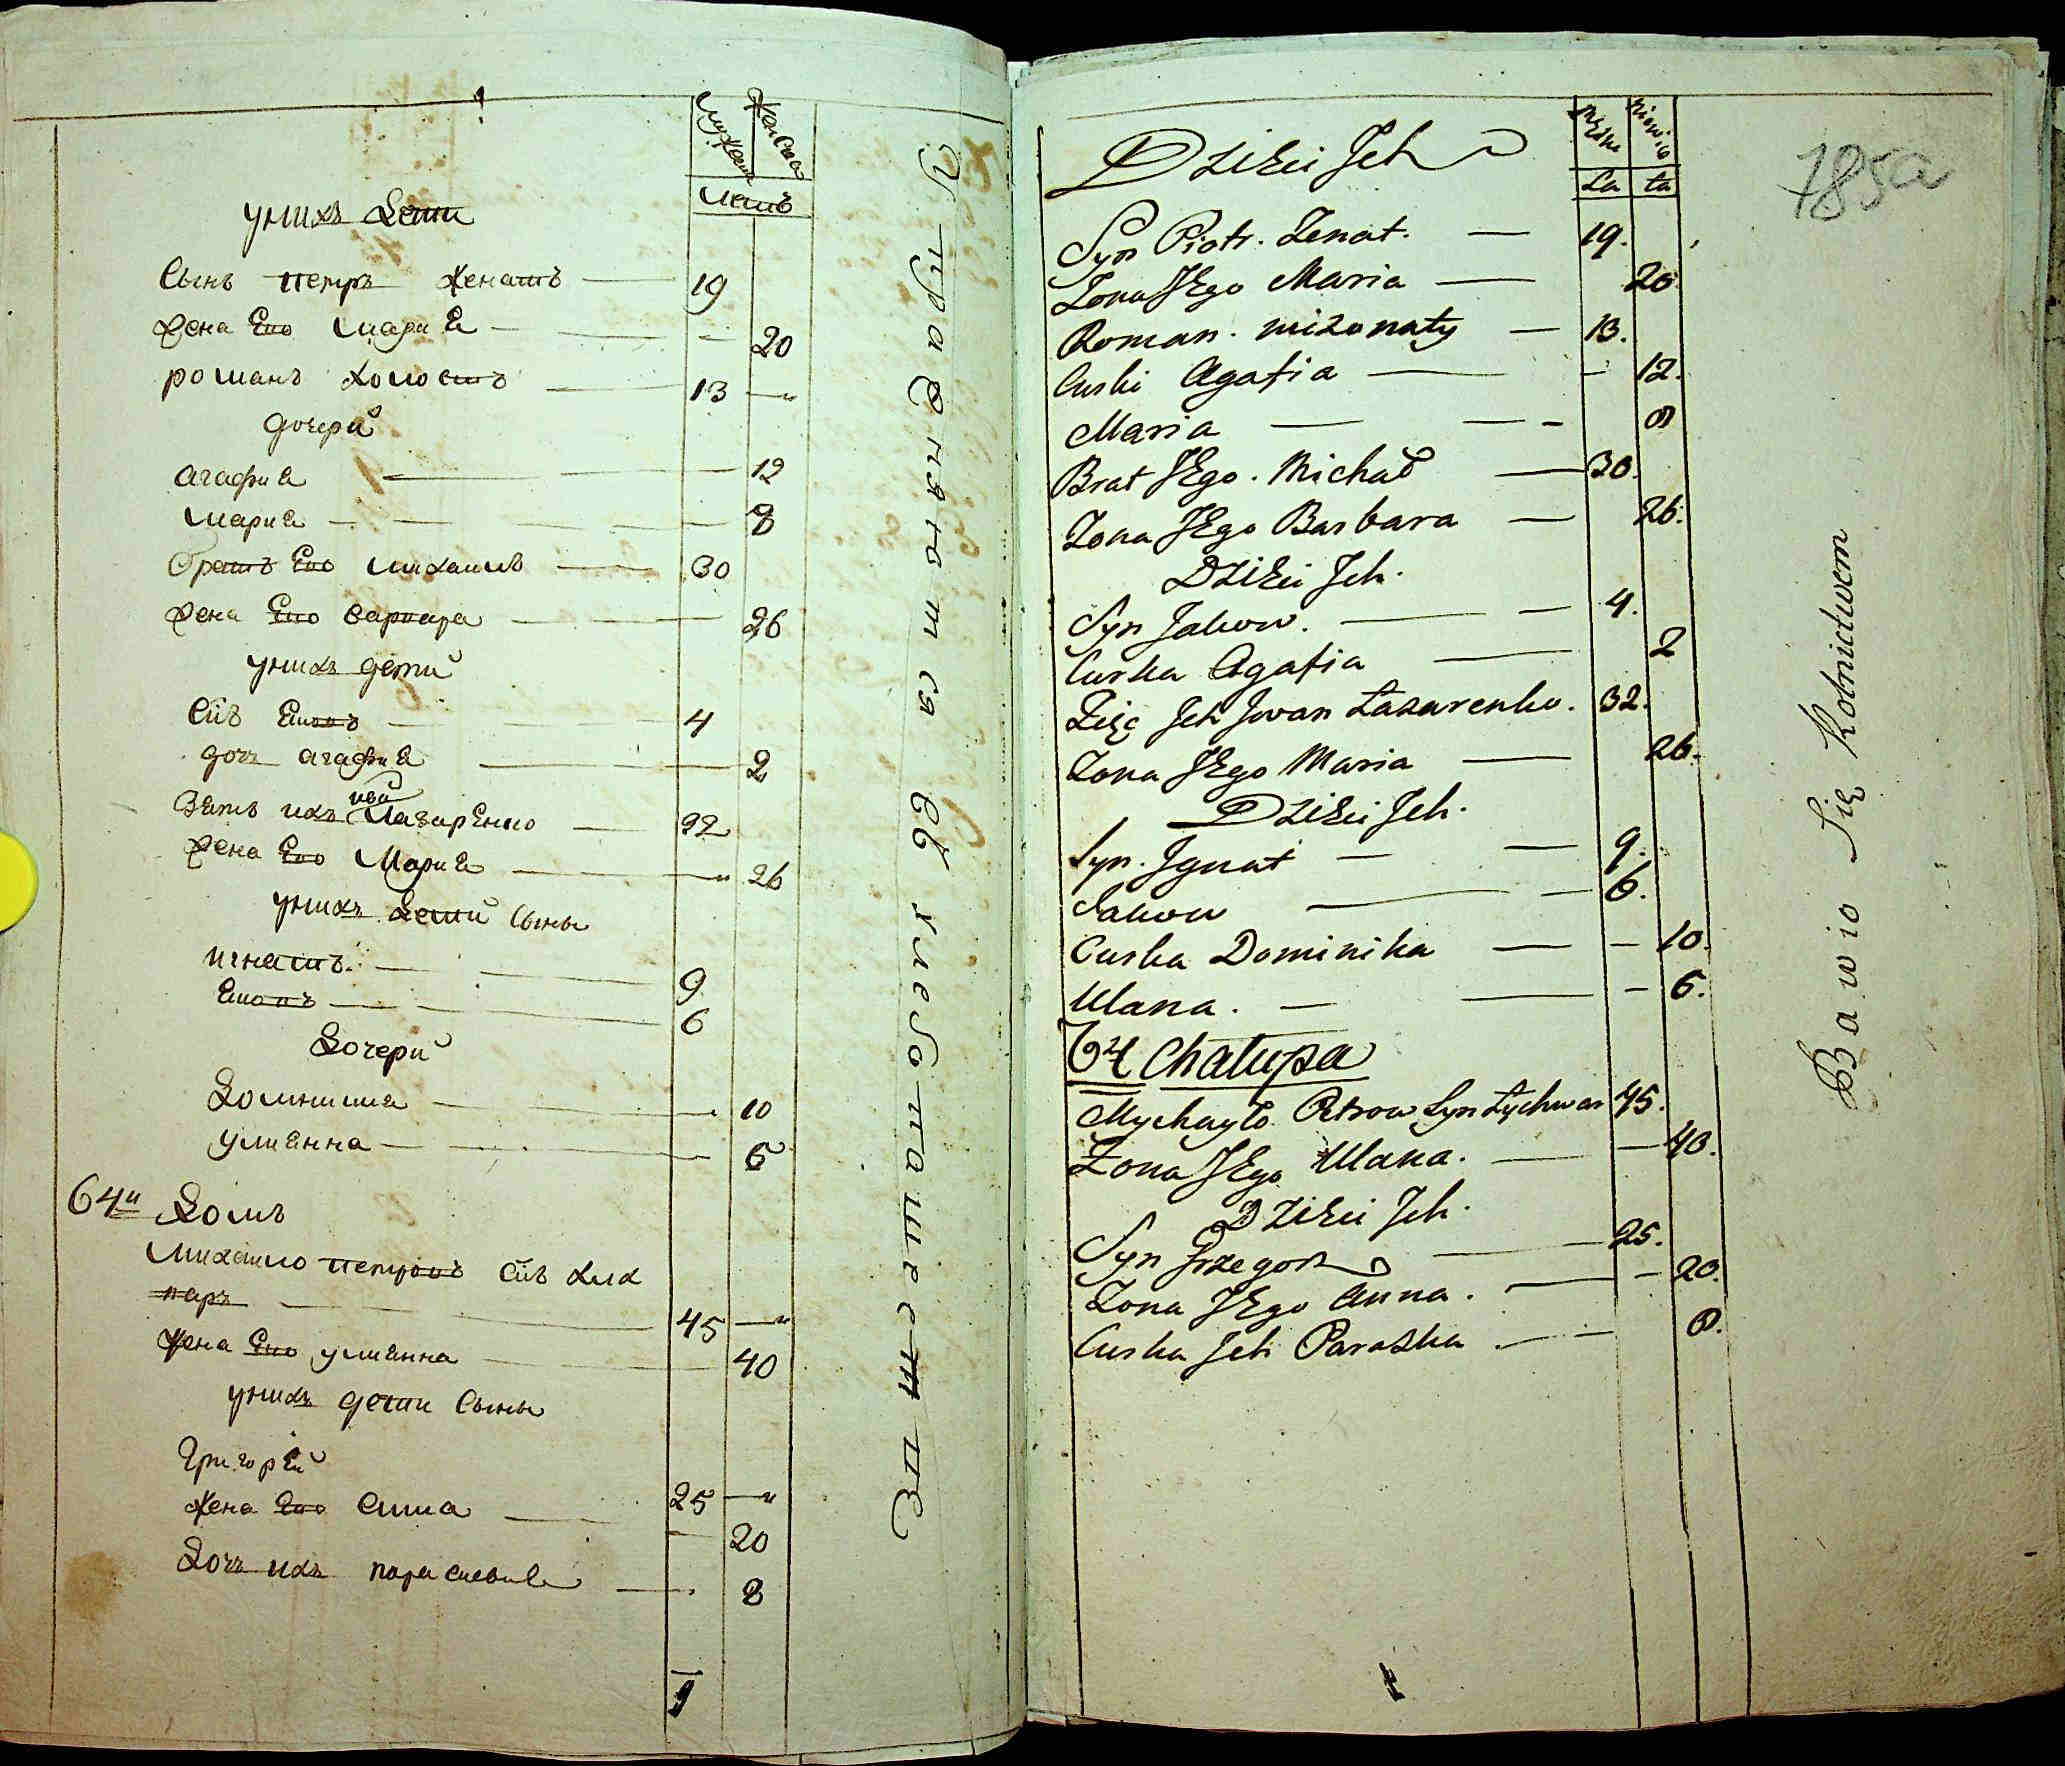 Мужеска Женска
Летъ
у нихъ дети
Сынъ петръ женатъ 19
жена Его мариа 20
романъ холостъ 13
дочери
агафиа 12
мариа 8
братъ Его михаилъ 30
жена Его варвара 26
у нихъ дети
Сiнъ Емовъ 4
доч агафиа 2
Зять ихъ ива ЛазарЕнко 32
жена Его Мариа 26
у нихъ дети Сыны
игнатъ 9
Емовъ 6
Дочери
Домникиа 10
улианна 6
64й Домъ
Михаило петровъ Сiнъ лих
варъ 45
жена Его улианна 40
у нихъ дети Сыны
григорЕй 25
жена Его анна 20
Дочъ ихъ парасковиа 8
Упражняются въ хлебопашестве
785a
Męzka Niewia
La ta
Dzieci Jch
Syn Piotr. Żenat. 19.
Żona JEgo Maria 20
Roman. nieżonaty 13.
Curki Agafia 12.
Maria 8
Brat JEgo. Michał 30.
Żona JEgo Barbara 26.
Dzieci Jch.
Syn Jakow. 4.
Curka Agafia 2
Zięć Jch Jwan Łazarenko. 32.
Żona JEgo Maria 26.
Dzieci Jch.
Syn. Jgnat 9.
Jakow 6.
Curka Dominika 10.
Ulana. 6.
64 Chałupa
Mychayło Petrow Syn Łychwar 45.
Żona JEgo Ulana. 40.
Dzieci Jch.
Syn Grzegorz 25.
Żona JEgo Anna. 20.
Curka Jch Paraska 8.
Bawio Się Rolnictwem